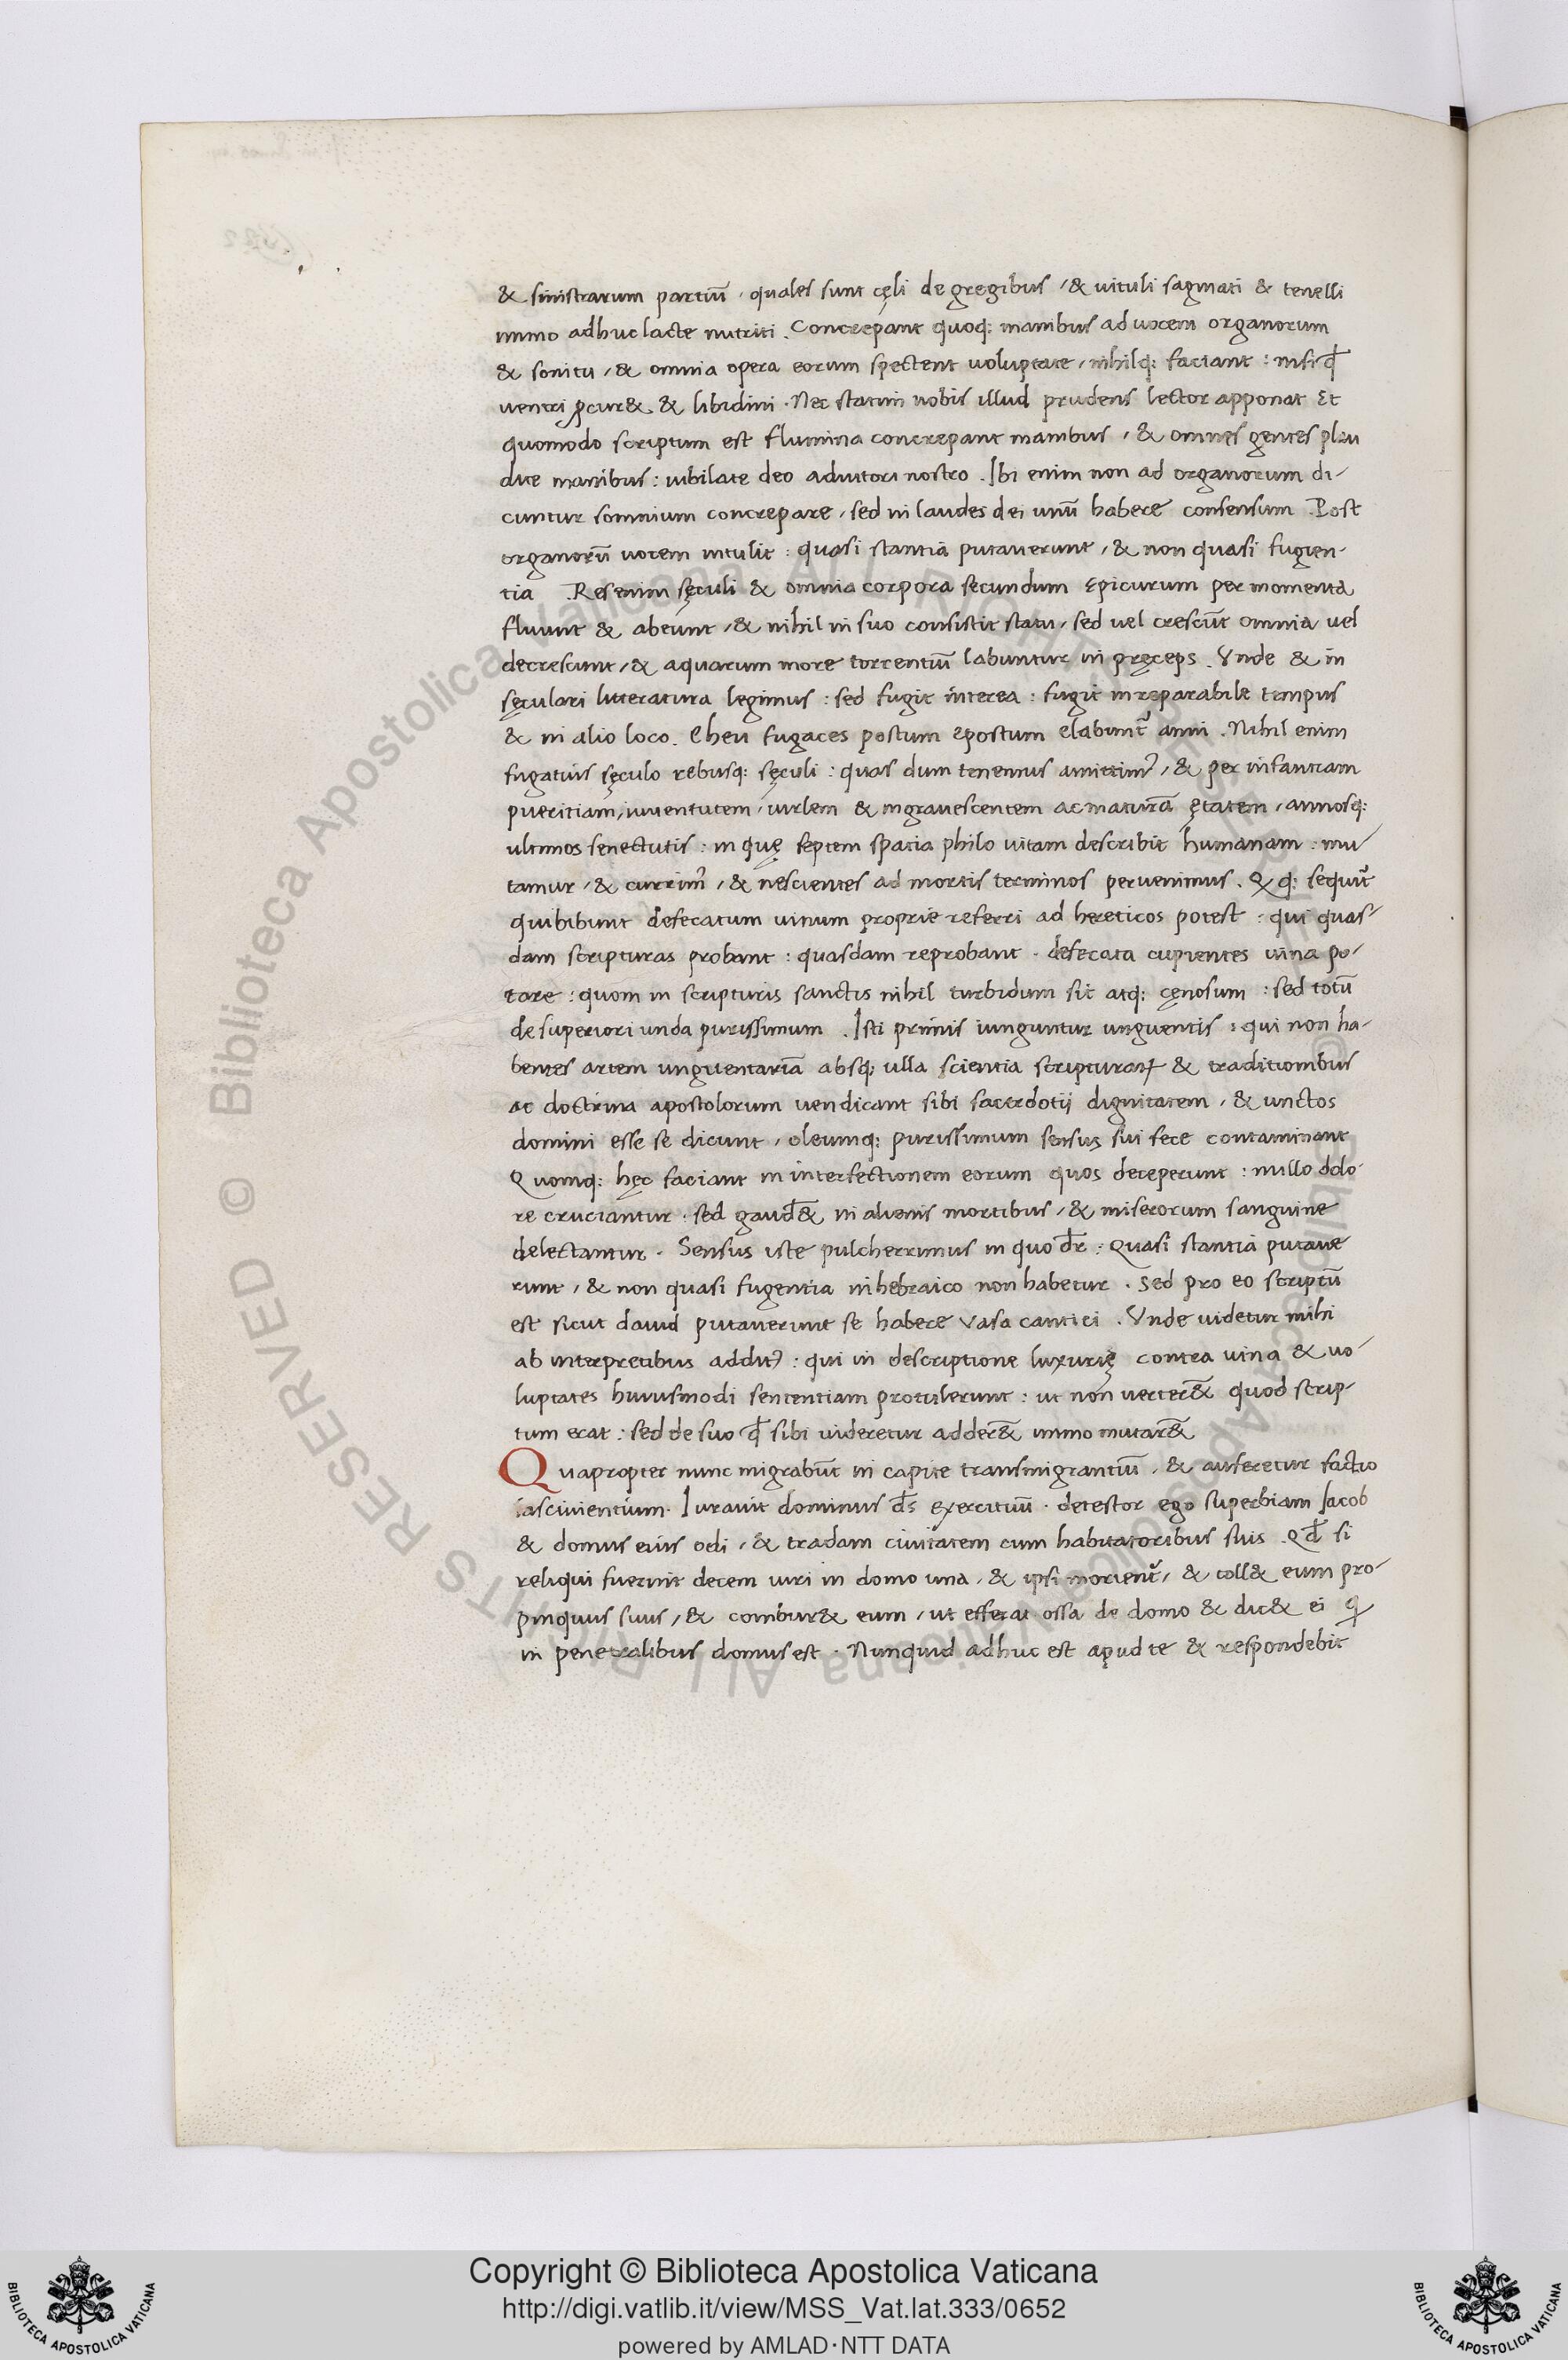 & sinistrarum partiū, quales sunt cęli de gregibus, & uituli sagmati & tenelli
immo adhuc lacte nutriti. Concrepant quoq; manibus ad uocem organorum
& sonitu, & omnia opera eorum spectent uoluptate, nihilq; faciant: nisi qđ
uentri ꝓcur& & libidini. Nec statim nobis illud prudens lector apponat Et
quomodo scriptum est flumina concrepant manibus, & omnes gentes plau
dite manibus: iubilate deo adiutori nostro. Ibi enim non ad organorum di-
cuntur somnium concrepare, sed in laudes dei unū habere consensum. Post
organorū uocem intulit: quasi stantia putauerunt, & non quasi fugien-
tia. Res enim sęculi & omnia corpora secundum Epicurum per momenta
fluunt & abeunt, & nihil in suo consistit statu, sed uel crescūt omnia uel
decrescunt, & aquarum more torrentiū labuntur in pręceps. Vnde & in
sęculari litteratura legimus: sed fugit interea: fugit inreparabile tempus
& in alio loco. Eheu fugaces postum epostum elabunt᷑ anni. Nihil enim
fugatius sęculo rebusq; sęculi: quas dum tenemus amittimꝰ, & per infantiam
pueritiam, iuuentutem, uirlem & ingrauescentem ac maturā ętatem, annosq;
ultimos senectutis: in quę septem spatia philo uitam describit humanam: mu
tamur, & currimꝰ, & nescientes ad mortis terminos peruenimus. Qꝙ; sequūt
qui bibunt defecatum uinum proprie referri ad hereticos potest: qui quas-
dam scripturas probant: quasdam reprobant. defecata cupientes uina po-
tare: quom in scripturis sanctis nihil turbidum sit atq; cęnosum: sed totū
de superiori unda purissimum. Isti primis iunguntur unguentis: qui non ha-
bentes artem unguentariā absq; ulla scientia scripturaꝝ & traditionibus
ac doctrina apostolorum uendicant sibi sacerdotij dignitatem, & unctos
domini esse se dicunt, oleumq; purissimum sensus sui fece contaminant
Quomq; hęc faciant in interfectionem eorum quos deceperunt: nullo dolo-
re cruciantur. sed gaud& in alienis mortibus, & miserorum sanguine
delectantur. Sensus iste pulcherrimus in quo dr̄: Quasi stantia putaue
runt, & non quasi fugentia in hebraico non habetur. Sed pro eo scriptū
est sicut dauid putauerunt se habere vasa cantici. Vnde uidetur mihi
ab interpretibus additꝰ: qui in descriptione luxurię contra uina & uo-
luptates huiusmodi sententiam protulerunt: ut non uerter& quod scrip-
tum erat: sed de suo qđ sibi uideretur adder& immo mutar&
Quapropter nunc migrabūt in capite transmigrantiū, & auferetur factio
lasciuientium. Iurauit dominus dš exercituū. detestor ego superbiam Jacob
& domus eius odi, & tradam ciuitatem cum habitatoribus suis. Qđ si
reliqui fuerint decem uiri in domo una, & ipsi morient᷑, & toll& eum pro-
pinquus suus, & combur& eum, ut efferat ossa de domo & dic& ei q
in penetralibus domus est. Nunquid adhuc est apud te & respondebit
Copyright © Biblioteca Apostolica Vaticana
http://digi.vatlib.it/view/MSS_Vat.lat.333/0652
powered by AMLAD·NTT DATA
BIBLIOTECA APOSTOLICA VATICANA
BIBLIOTECA APOSTOLICA VATICANA